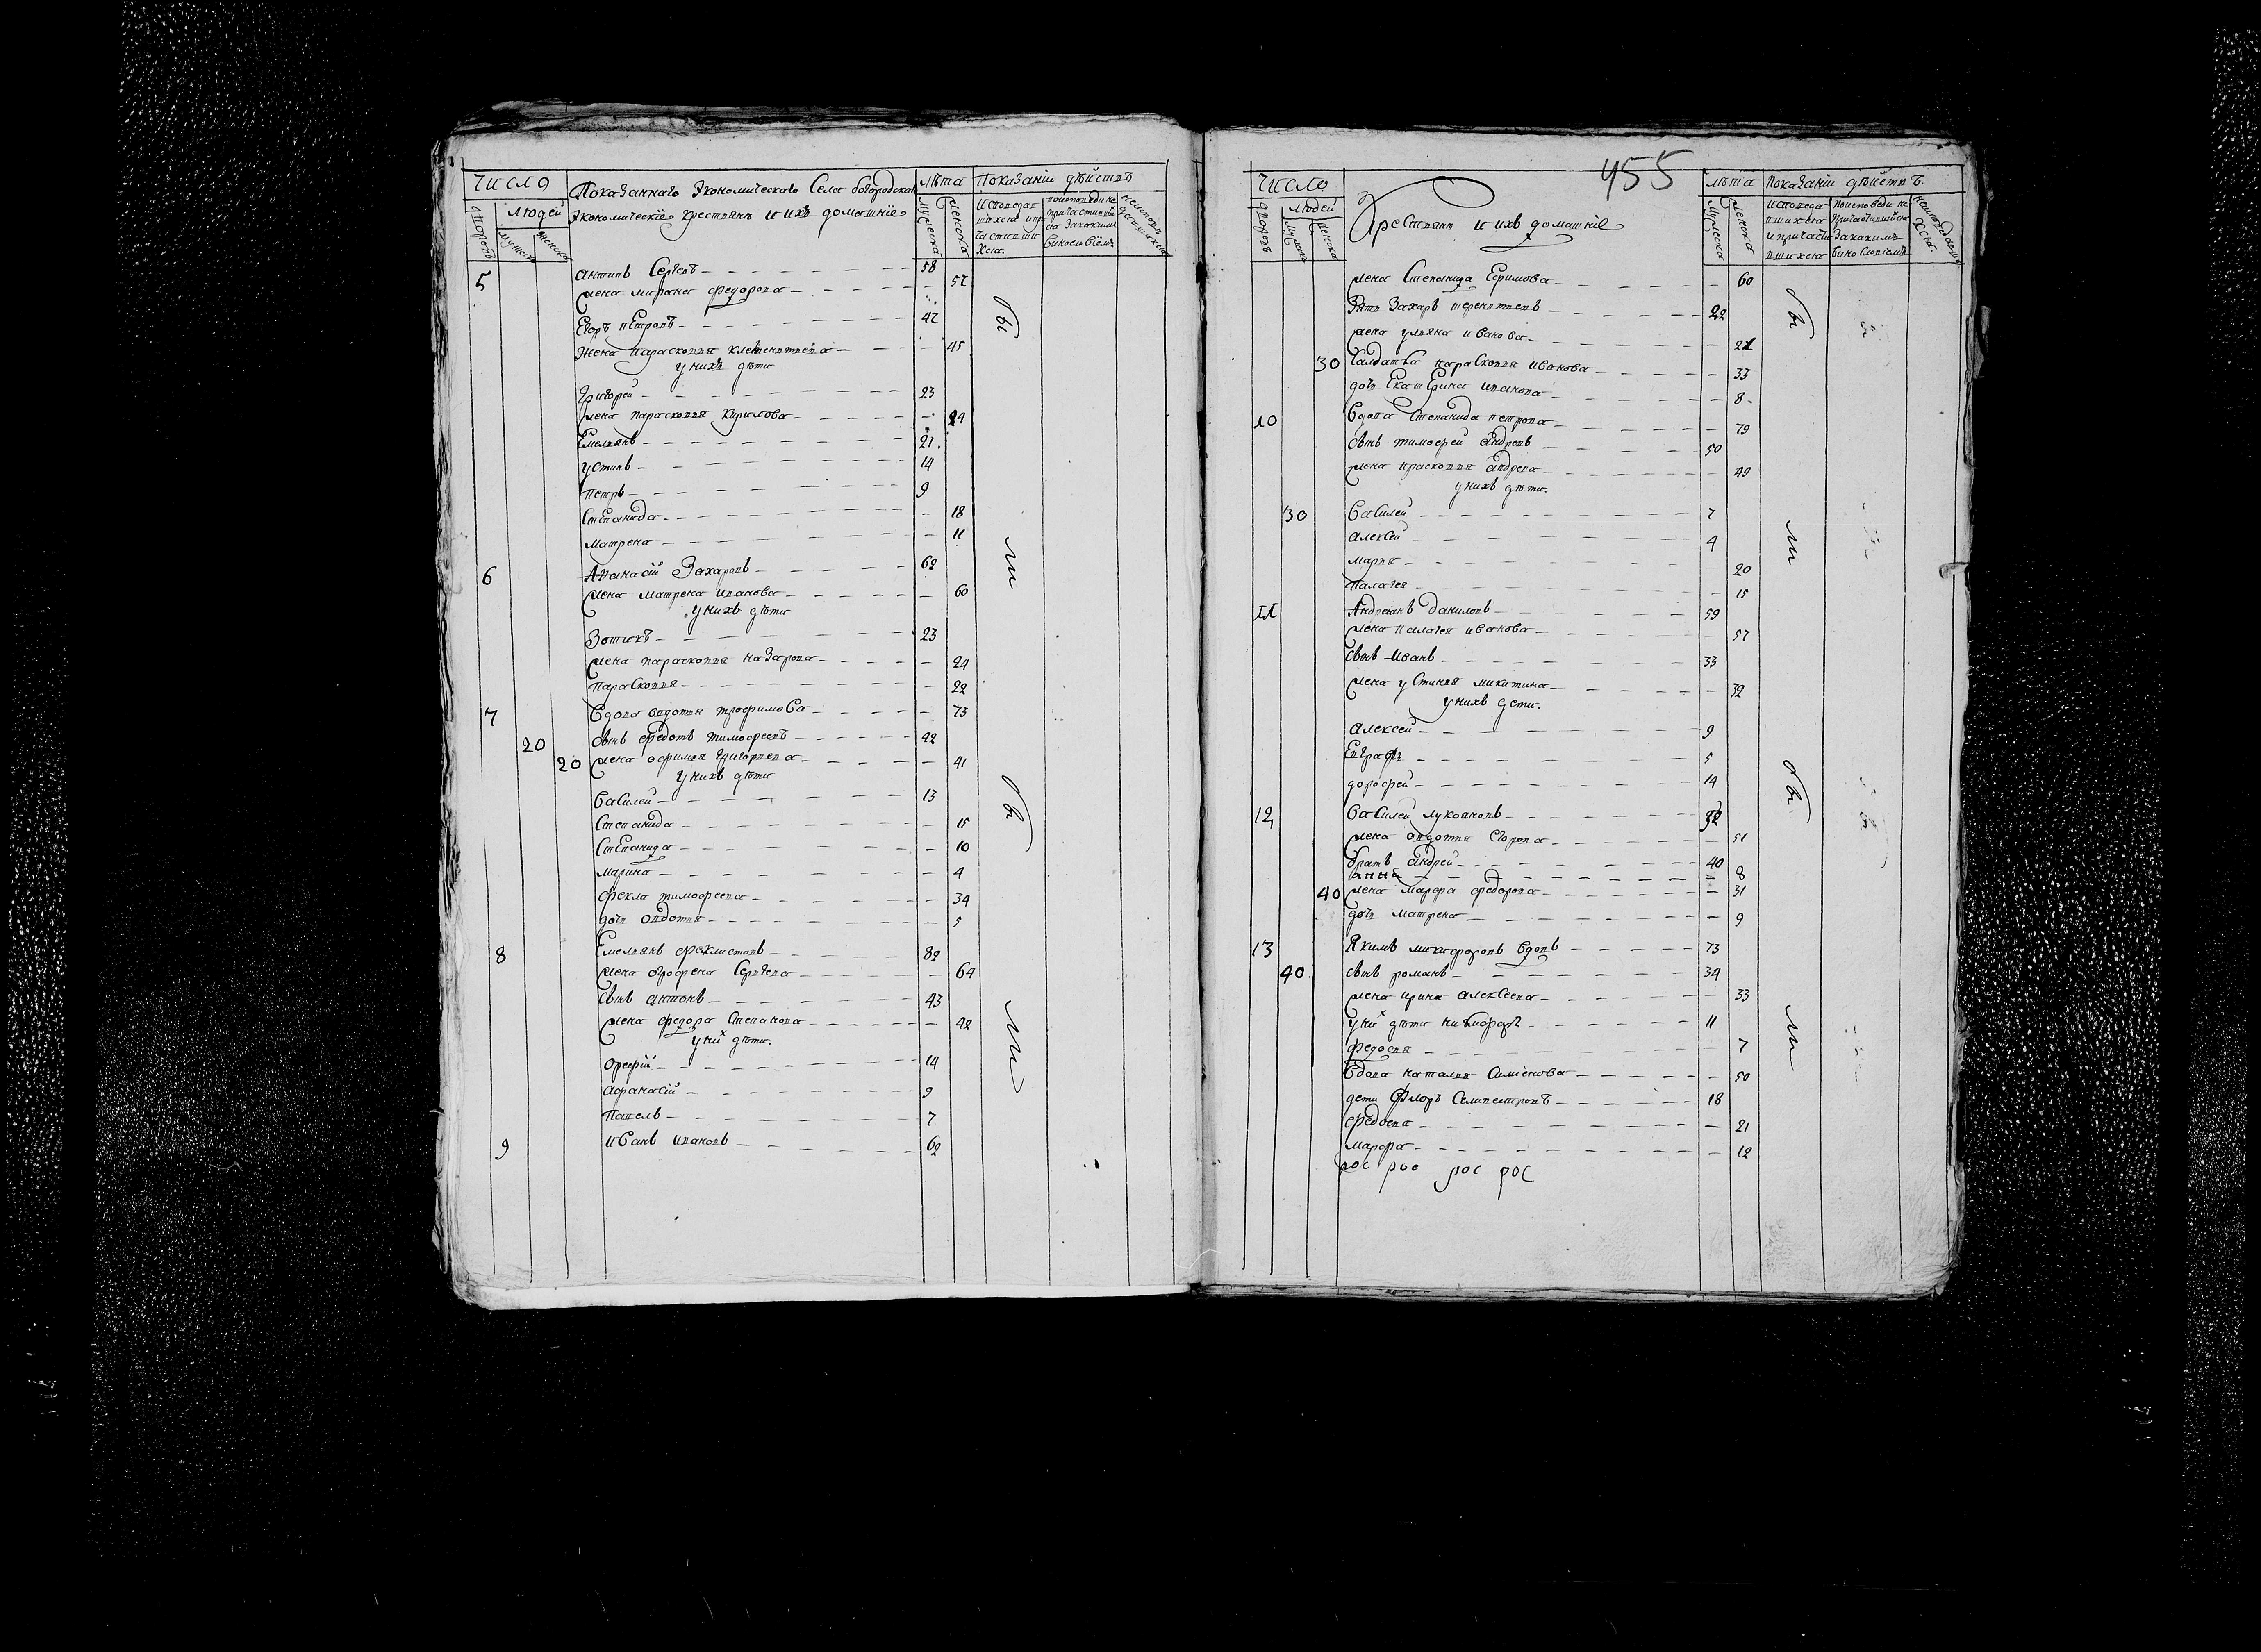 Число
Показаннаго Экономическаго Села богородскаго
лѣта
Показаніи дѣйствъ
людей
Экономическіе крестьянъ и ихъ домашніе
дворовъ
мужеска
женска
мужеска
женска
5 антипъ Сергевъ 58
жена мирана федорова 57
Егоръ пЕтровъ 47
Жена параскопия клеменьтьева 45
у нихъ дѣти
Григорей 23
жена параскопия Кирилова 24
Емельянъ 21
устинъ 14
петръ 9
СтЕпанида 18
Матрена 11
6 Афанасій Захаровъ 62
жена матрена иванова 60
у нихъ дѣти
Зотикъ 23
жена параскопия назарова 24
параскопия 22
7 вдова овдотья трофимова 73
20 сынъ федотъ тимофеевъ 42
20 жена офимья григорьева 41
у нихъ дѣти
василей 13
Степанида 15
СтЕпанида 10
марина 4
фекла тимофеева 34
дочь овдотья 5
8 Емельянъ феклистовъ 82
жена офрофена Сергева 64
сынъ антонъ 43
жена федора Степанова 42
у них дѣти.
орефій 14
афанасій 9
павелъ 7
9 иванъ ивановъ 62
455
Число
крестьянъ и ихъ домашніе
лѣта
показаніи дѣйствъ.
дворовъ
людей
мужеска
женска
мужеска
женска
жена Степанида Ефимова 60
Зять Захаръ терентьевъ 22
жена ульяна иванова 21
30 салдатка параскопия иванова 33
дочь ЕкатЕрина иванова 8
10 вдова Степанида петрова 79
сынъ тимофей андревъ 50
жена праскопия андрева 49
у нихъ дѣти.
30 василей 7
алексей 4
марья 20
палагея 15
11 Андреянъ даниловъ 59
жена палагея иванова 57
сынъ иванъ 33
жена устинья микитина 32
у нихъ дети.
алексей 9
Евграфъ 5
дорофей 14
12 василей лукояновъ
жена овдотья егорова 51
братъ андрей 40
анна 8
40 жена марфа федорова 31
дочь матрена 9
13 Якимъ микифоровъ вдовъ 73
40 сынъ романъ 34
жена ирина алексеева 33
у них дѣти 11
федосья 7
вдова наталья Симіонова 50
дети Флоръ Селивестровъ 18
федосья 21
марфа 12
рос рос рос рос